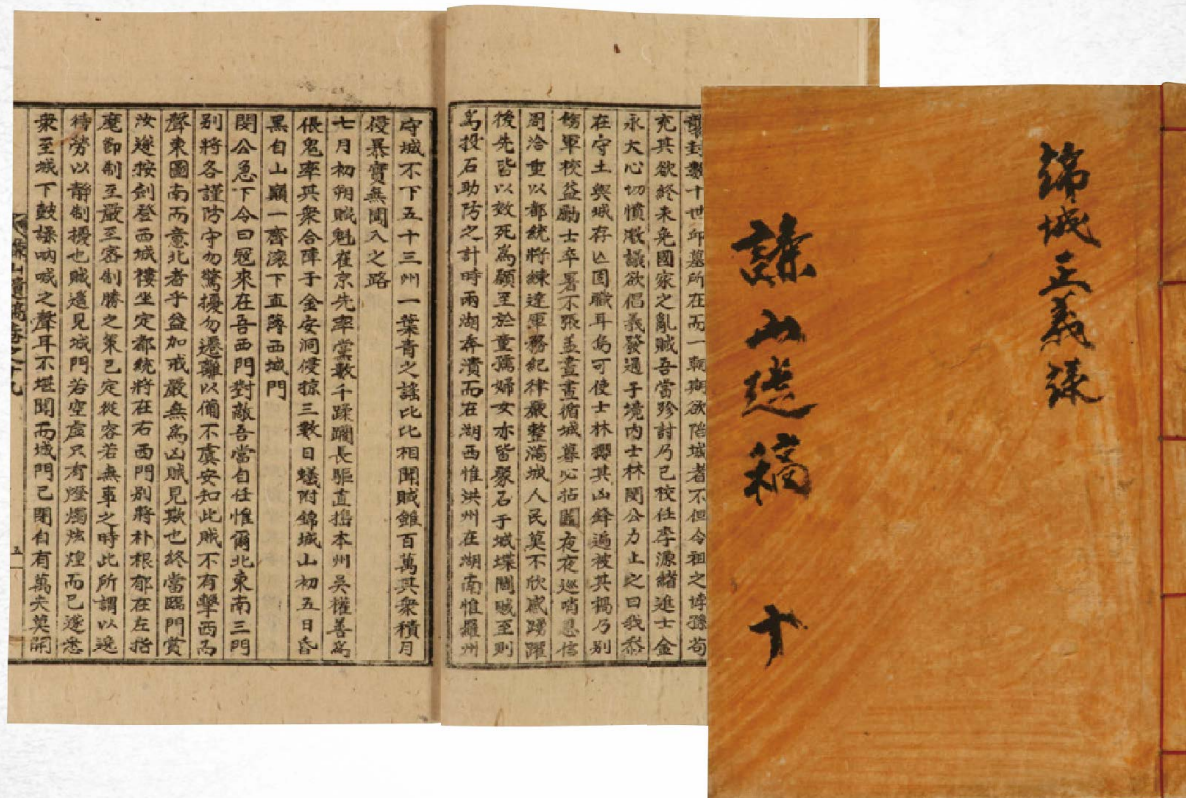 錦城正義錄
謙山遺稿 十
襲封數十世邱墓所在而一朝斯欲陷城者不但令祖之悖孫苟
充其欲終未免國家之亂賊吾當殄討乃已校任李源緖進士金
永大心切憤激議欲倡義發通于境內士林閔公力止之曰我忝
在守土與城存亡固職耳烏可使士林攖其凶鋒遍被其禍乃別
飭軍校益勵士卒暑不張盖晝晝循城暮必拈圍夜夜巡哨恩信
周洽重以都統將練達軍務紀律嚴整滿城人民莫不欣感踴躍
後先皆以效死爲願至於童孺婦女亦皆聚石于城堞聞賊至則
爲投石助防之計時兩湖奔潰而在湖西惟洪州在湖南惟羅州
守城不下五十三州一葉靑之謠比比相聞賊雖百萬其衆積月
侵暴實無闖入之路
七月初朔賊魁崔京先率黨數千蹂躪長驅直搗本州吳權善爲
倀鬼率其衆合陣于金安洞侵掠三數日蟻附錦城山初五日昏
黑自山巓一齊滾下直薄西城門
閔公急下令曰寇來在吾西門對敵吾當自任惟爾北東南三門
別將各謹防守勿驚擾勿遷離以備不虞安知此賊不有擊西而
聲東圖南而意北者乎益加戒嚴無爲凶賊見欺也終當臨門賞
汝遂按劍登西城樓坐定都統將在右西門別將朴根郁在左指
麾節制至嚴至密制勝之策已定從容若無事之時此所謂以逸
待勞以靜制擾也賊遙見城門若空虛只有燈燭炫煌而已遂悉
衆至城下鼓譟吶喊之聲耳不堪聞而城門已閉自有萬夫莫開
謙山遺稿卷之十九
五